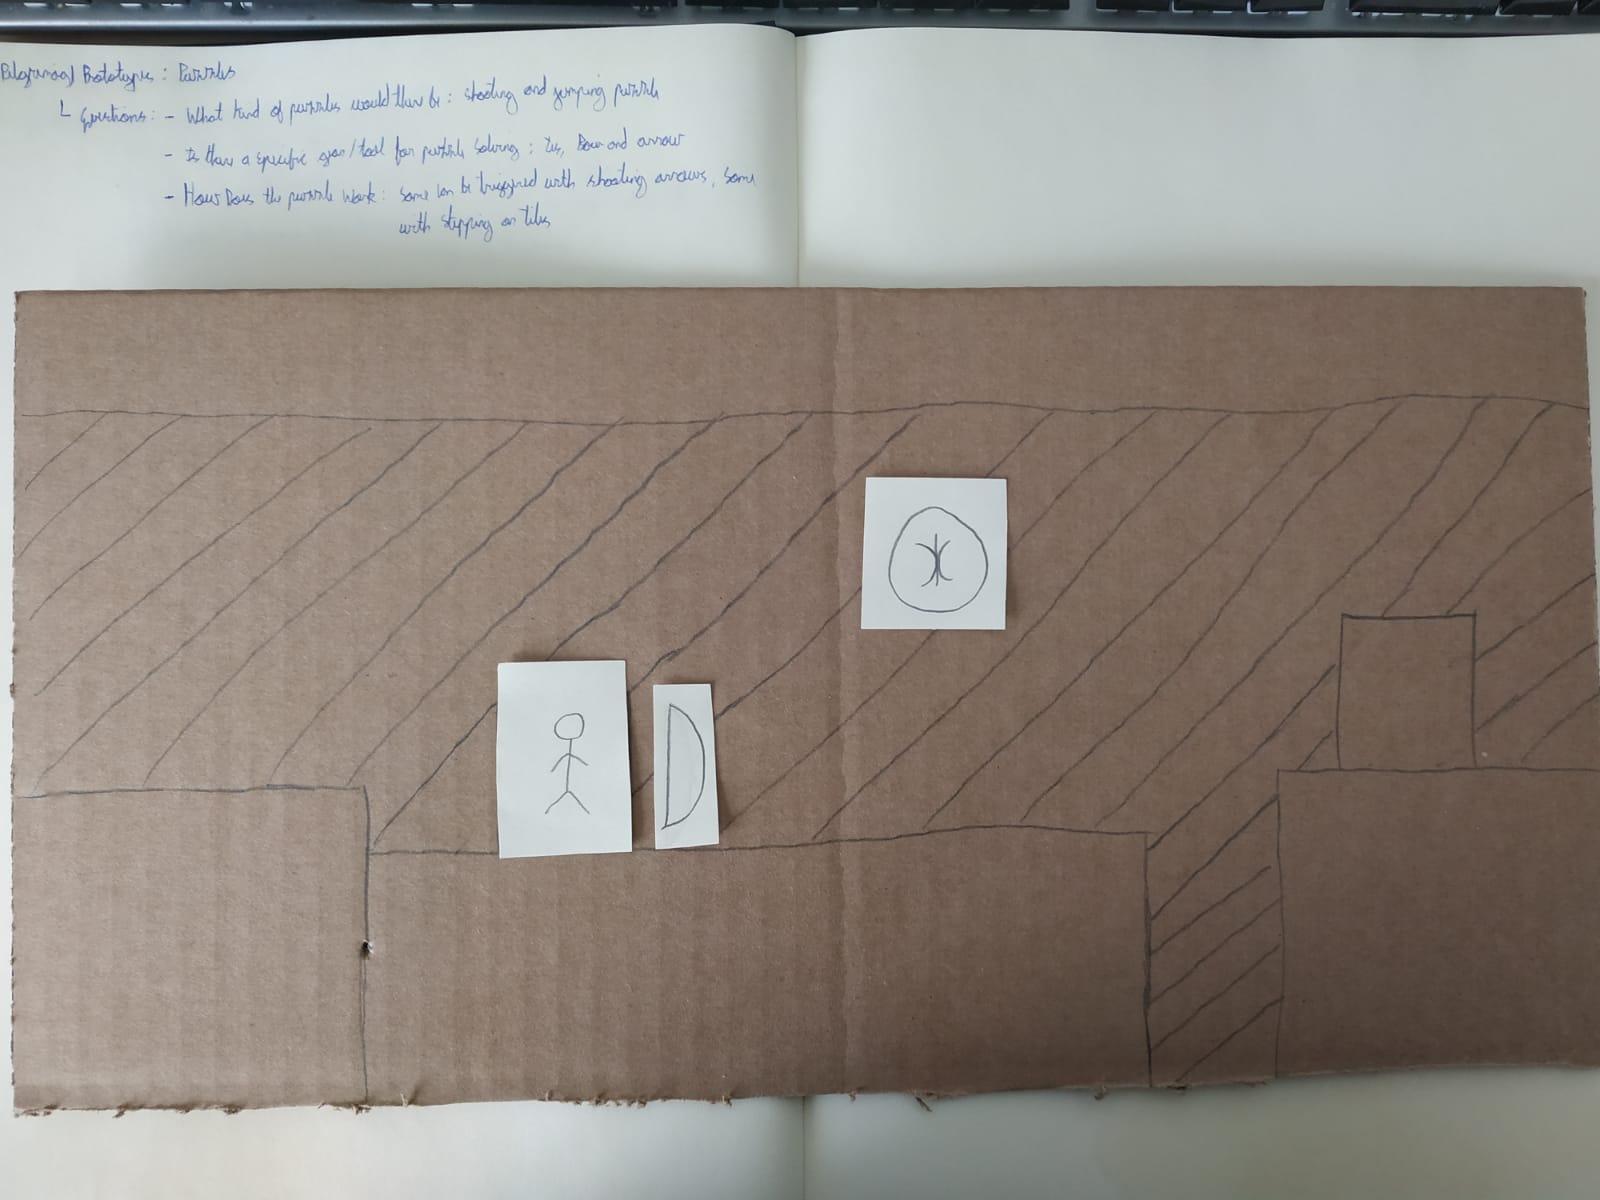 Pilgrimage Prototype: Puzzles
Questions: - What kind of puzzles would there be: shooting and jumping puzzle
- Is there a specific gear/tool for puzzle solving: Yes, Bow and arrow
- How Does the puzzle Work: Some can be triggered with shooting arrows, some
with stepping on tiles